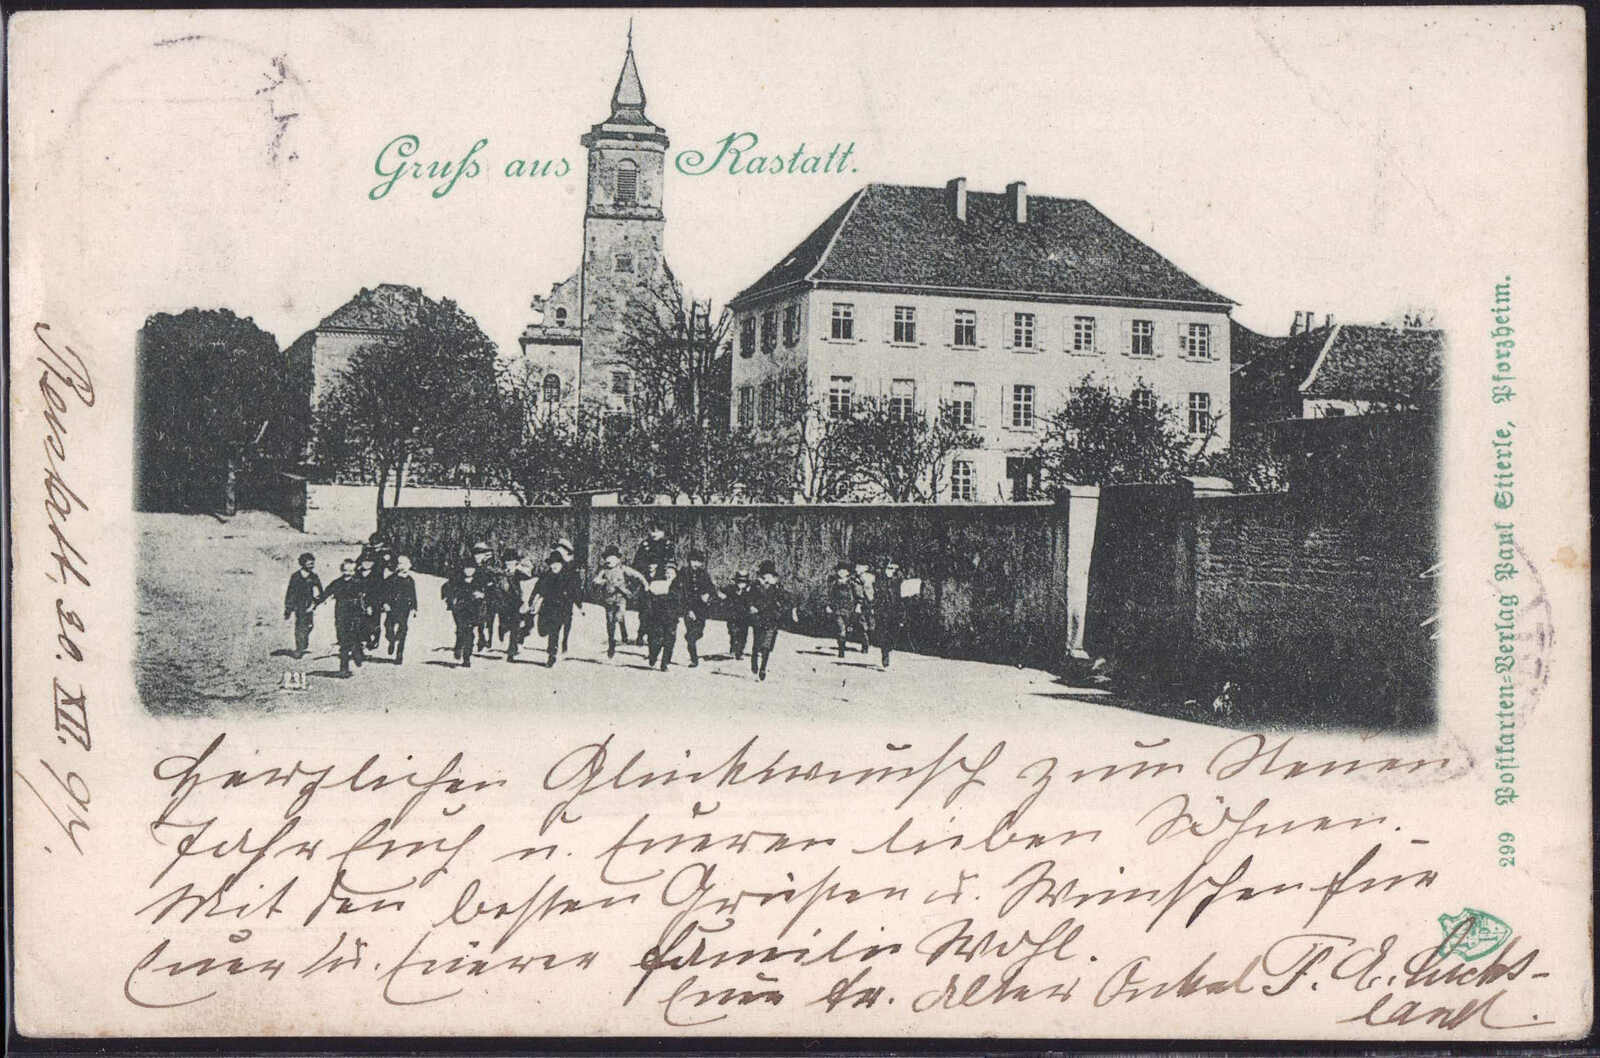 Gruß aus Rastatt.
299 Postkarten=Verlag Paul Stierle, Pforzheim.
20. XII. 97.
Herzlichen Glückwunsch zum Neuen
Jahr Euch u. Eueren lieben Söhnen.
Mit den besten Grüßen u. Wünschen für
Euer u. Euerer Familie Wohl.
Euer tr. alter Onkel F. E.
land.